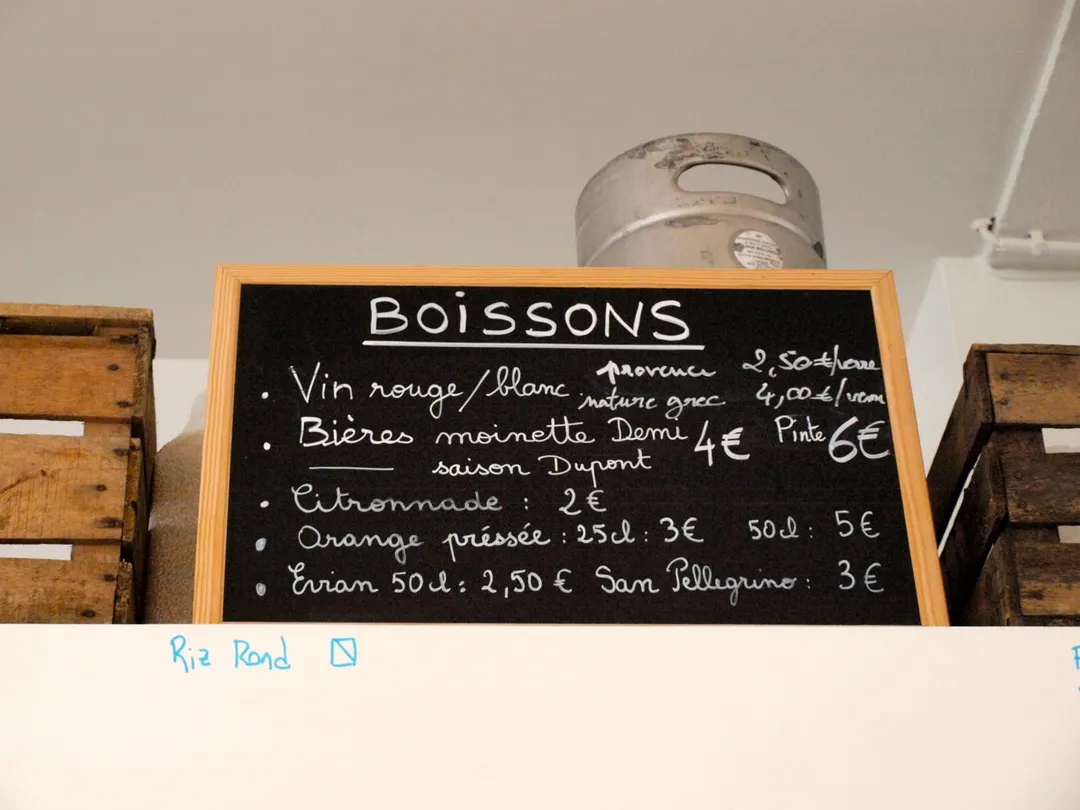 BOISSONS
• Vin rouge/blanc : provence 2,50 €/verre
nature grec 4,00 €/verre
• Bières moinette Demi 4€ Pinte 6€
saison Dupont
• Citronnade : 2€
• Orange préssée : 25cl : 3€ 50cl : 5€
• Evian 50cl : 2,50 € San Pellegrino : 3€
Riz Rond